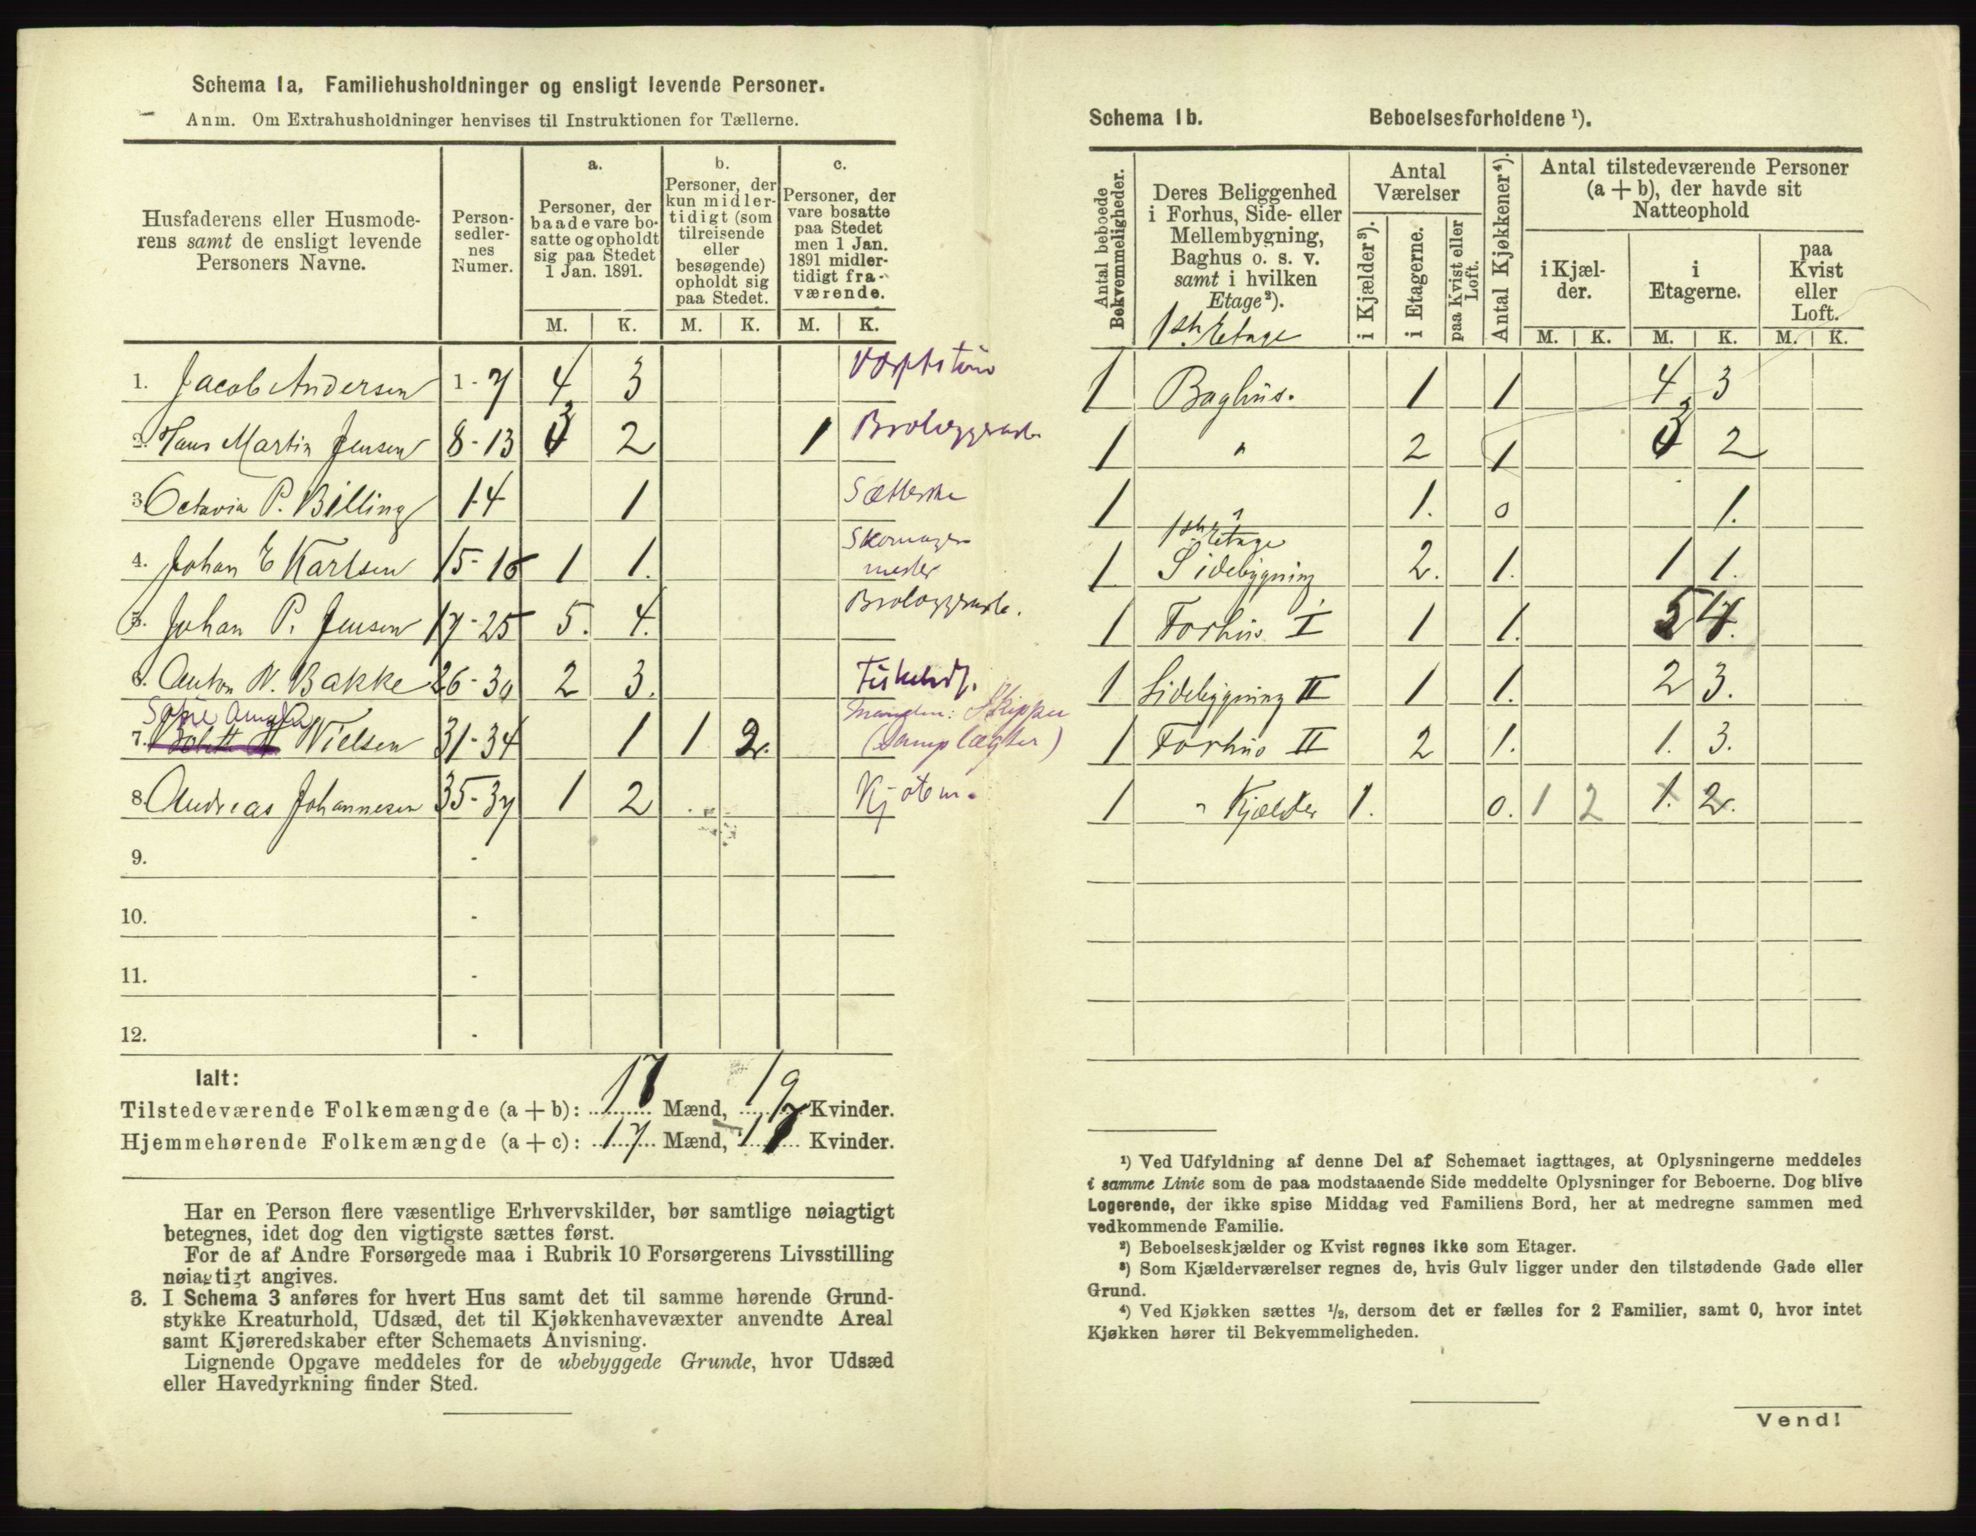 Schema 1a. Familiehusholdninger og ensligt levende Personer.
Anm. Om Extrahusholdninger henvises til Instruktionen for Tællerne.
Husfaderens eller Husmode-
rens samt de ensligt levende
Personers Navne.
Person-
sedler-
nes
Numer.
a.
Personer, der
baade vare bo-
satte og opholdt
sig paa Stedet
1 Jan. 1891.
b.
Personer, der
kun midler-
tidigt (som
tilreisende
eller
besøgende)
opholdt sig
paa Stedet.
c.
Personer, der
vare bosatte
paa Stedet
men 1 Jan.
1891 midler-
tidigt fra-
værende.
M. K. M. K. M. K.
1. Jacob Andersen 1-7 4 3
2. Hans Martin Jensen 8-13 3 2 1
3. Octavia P. Billing 14 1 Sætterske
4. Johan E Karlsen 15-16 1 1. Skomager
mester
5. Johan P. Jensen 17-25 5. 4.
6. Anton N. Bakke 26-30 2 3.
7. Nielsen 31-34 1 1 2.
8. Andreas Johannesen 35-37 1 2
9. -
10. -
11. -
12. -
Ialt:
Tilstedeværende Folkemængde (a + b): 18 Mænd, 19 Kvinder.
Hjemmehørende Folkemængde (a + c): 17 Mænd, 17 Kvinder.
Har en Person flere væsentlige Erhvervskilder, bør samtlige nøiagtigt
betegnes, idet dog den vigtigste sættes først.
For de af Andre Forsørgede maa i Rubrik 10 Forsørgerens Livsstilling
nøiagtigt angives.
3. I Schema 3 anføres for hvert Hus samt det til samme hørende Grund-
stykke Kreaturhold, Udsæd, det til Kjøkkenhavevæxter anvendte Areal
samt Kjøreredskaber efter Schemaets Anvisning.
Lignende Opgave meddeles for de ubebyggede Grunde, hvor Udsæd
eller Havedyrkning finder Sted.
Schema 1b. Beboelsesforholdene ¹).
Antal beboede
Bekvemmeligheder.
Deres Beliggenhed
i Forhus, Side- eller
Mellembygning,
Baghus o. s. v.
samt i hvilken
Etage²).
1ste Etage
Antal
Værelser
i Kjælder³).
i Etagerne.
paa Kvist eller
Loft.
Antal Kjøkkener⁴).
Antal tilstedeværende Personer
(a + b), der havde sit
Natteophold
i Kjæl-
der.
i
Etagerne.
paa
Kvist
eller
Loft.
M. K. M. K. M. K.
1 Baghus. 1 1 4 3
1 " 2 1 3 2
1 " 1. 0 1.
1ste Etage
1 Sidebygning 2. 1. 1 1.
1 Forhus I 1 1. 5 4.
1 Sidebygning II 1 1. 2 3.
1 Forhus II 2 1. 1. 3.
1 " Kjælder 1. 0. 1 2 1. 2.
¹) Ved Udfyldning af denne Del af Schemaet iagttages, at Oplysningerne meddeles
i samme Linie som de paa modstaaende Side meddelte Oplysninger for Beboerne. Dog blive
Logerende, der ikke spise Middag ved Familiens Bord, her at medregne sammen med
vedkommende Familie.
²) Beboelseskjælder og Kvist regnes ikke som Etager.
³) Som Kjælderværelser regnes de, hvis Gulv ligger under den tilstødende Gade eller
Grund.
⁴) Ved Kjøkken sættes ½, dersom det er fælles for 2 Familier, samt 0, hvor intet
Kjøkken hører til Bekvemmeligheden.
Vend!